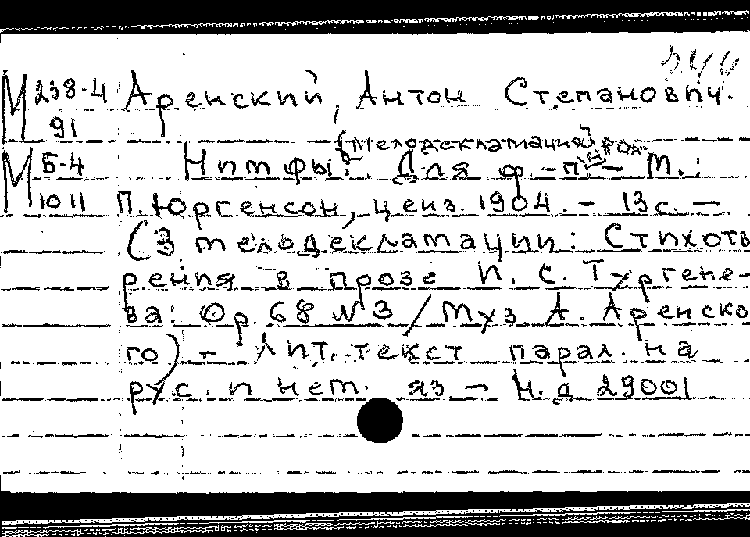 М 238-4 Аренский, Антон Степанович.
91
[Мелодекламация]
М Б-4 Нимфы: Для ф-п. — М.:
1011 П. Юргенсон, ценз. 1904. — 13 с. —
(3 мелодекламации: Стихотв
рения в прозе И. С. Тургене-
ва: Ор. 68 №3 / Муз. А. Аренско
го) — Лит. текст парал. на
рус. и нем. яз. — Н.д. 29001